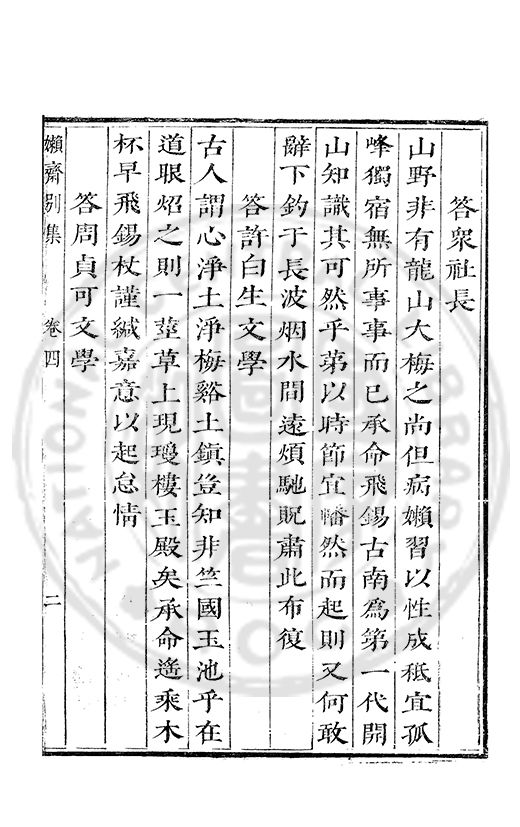 答衆社長
山野非有龍山大梅之尚但病嬾習以性成秪宜孤
峰獨宿無所事事而已承命飛錫古南爲第一代開
山知識其可然乎第以時節宜幡然而起則又何敢
辭下釣于長波烟水間遠煩馳貺肅此布復
答許白生文學
古人謂心淨土淨梅谿土鎭豈知非竺國玉池乎在
道眼炤之則一莖草上現瓊樓玉殿矣承命遙乘木
杯早飛錫杖謹緘嘉意以起怠情
答周貞可文學
嬾齋別集 卷四 二